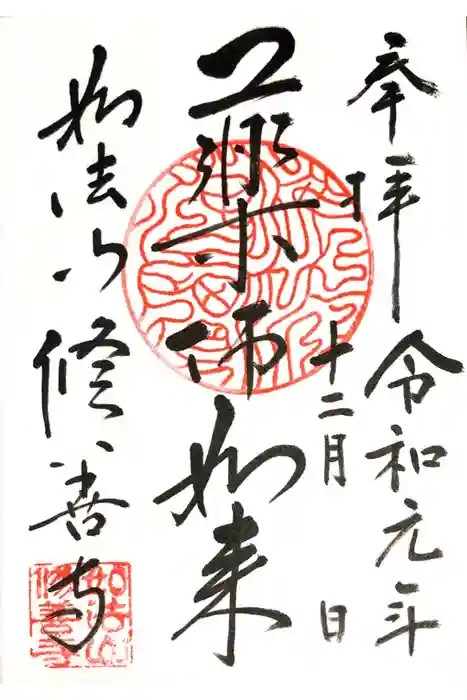 奉拝
令和元年
十二月 日
薬師如来
如法山
修善寺